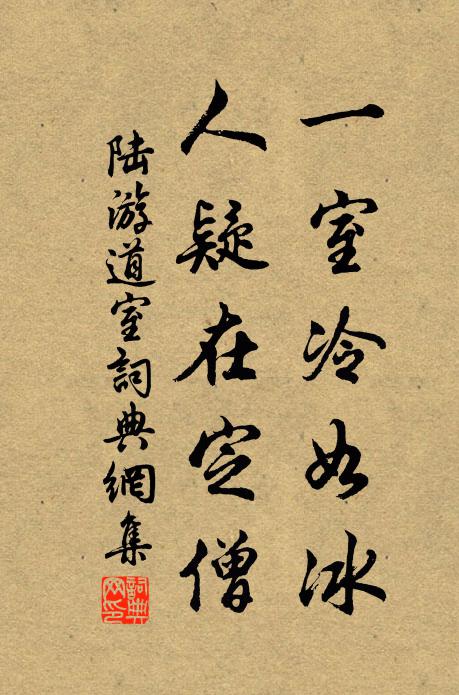 一室冷如冰
人疑在定僧
陆游道室詞典網集
詞典网印